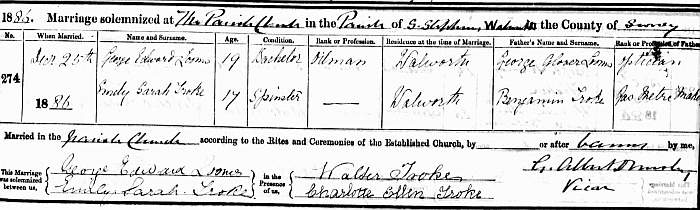 1886. Marriage solemnized at The Parish Church in the Parish of S. Stephen, in the County of Surrey
No. When Married. Name and Surname. Age. Condition. Rank or Profession. Residence at the time of Marriage. Father's Name and Surname. Rank or Profession of Father
274 Decr 25th George Edward 19 Bachelor Oilman Walworth George Glover Optician
1886 Emily Sarah Troke 17 Spinster — Walworth Benjamin Troke Gas Metre
Married in the Parish Church according to the Rites and Ceremonies of the Established Church, by or after banns by me,
This Marriage was solemnized between us, George Edward In the Presence of us, Walter Tooke G. Albert
Emily Sarah Troke Charlotte Ellen Troke Vicar